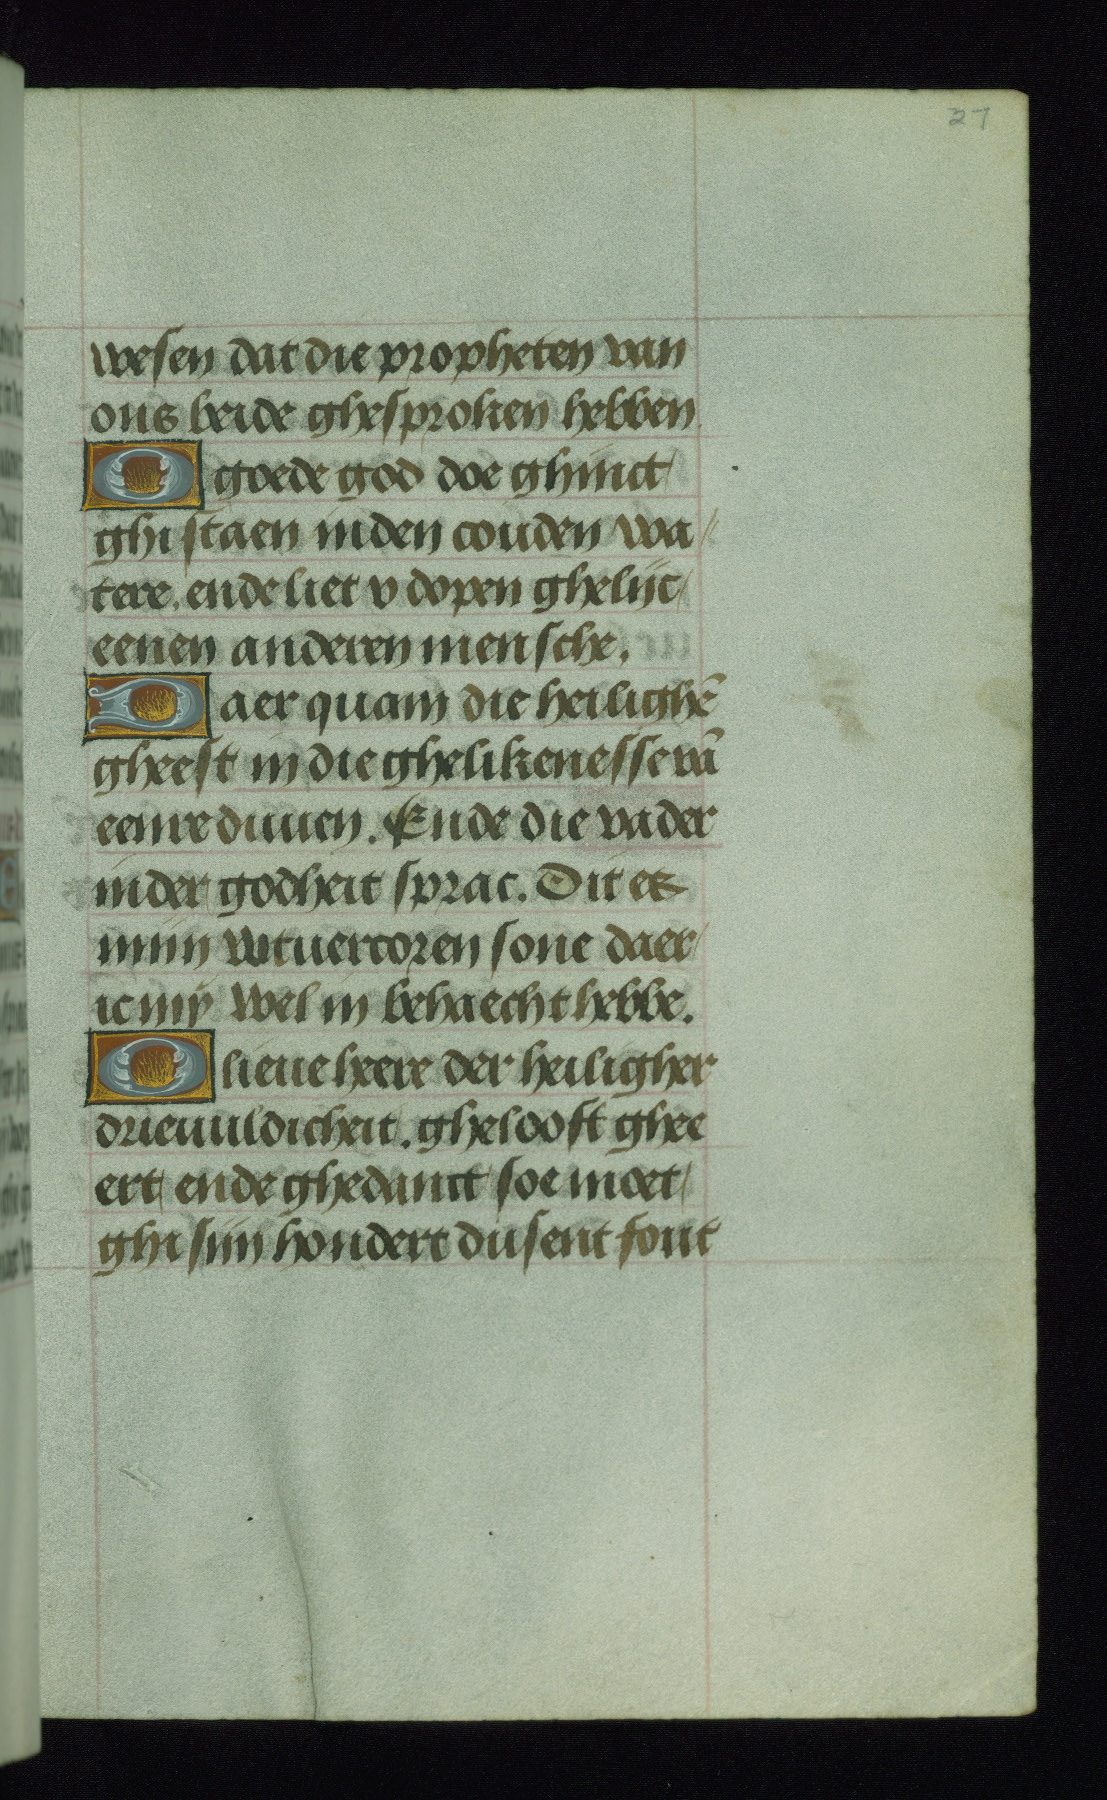 27
wesen dat die propheten van
ons beide ghesproken hebben
O goede god doe ghinct
ghi staen inden couden wa
tere. ende liet v dopen ghelijc
eenen anderen mensche.
Daer quam die heilighē
gheest in die ghelikenesse vā
eenre duuen. Ende die vader
inder godheit sprac. Dit es
mijn wtuercoren sone daer
ic mÿ wel in behaecht hebbe.
O lieue heere der heiligher
drieuuldicheit. ghelooft ghee
ert ende ghedanct soe moet
ghi sijn hondert dusent fout